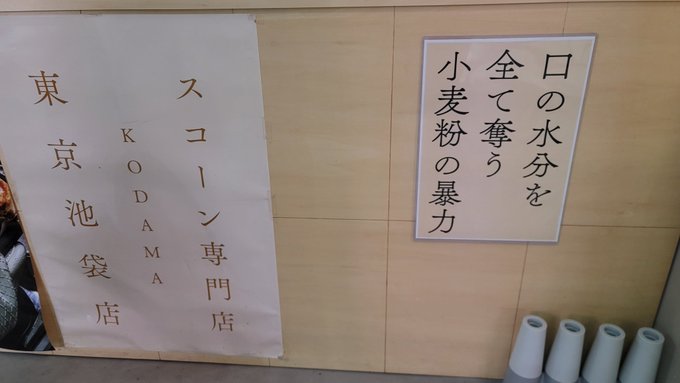 スコーン専門店
KODAMA
東京池袋店
口の水分を
全て奪う
小麦粉の暴力